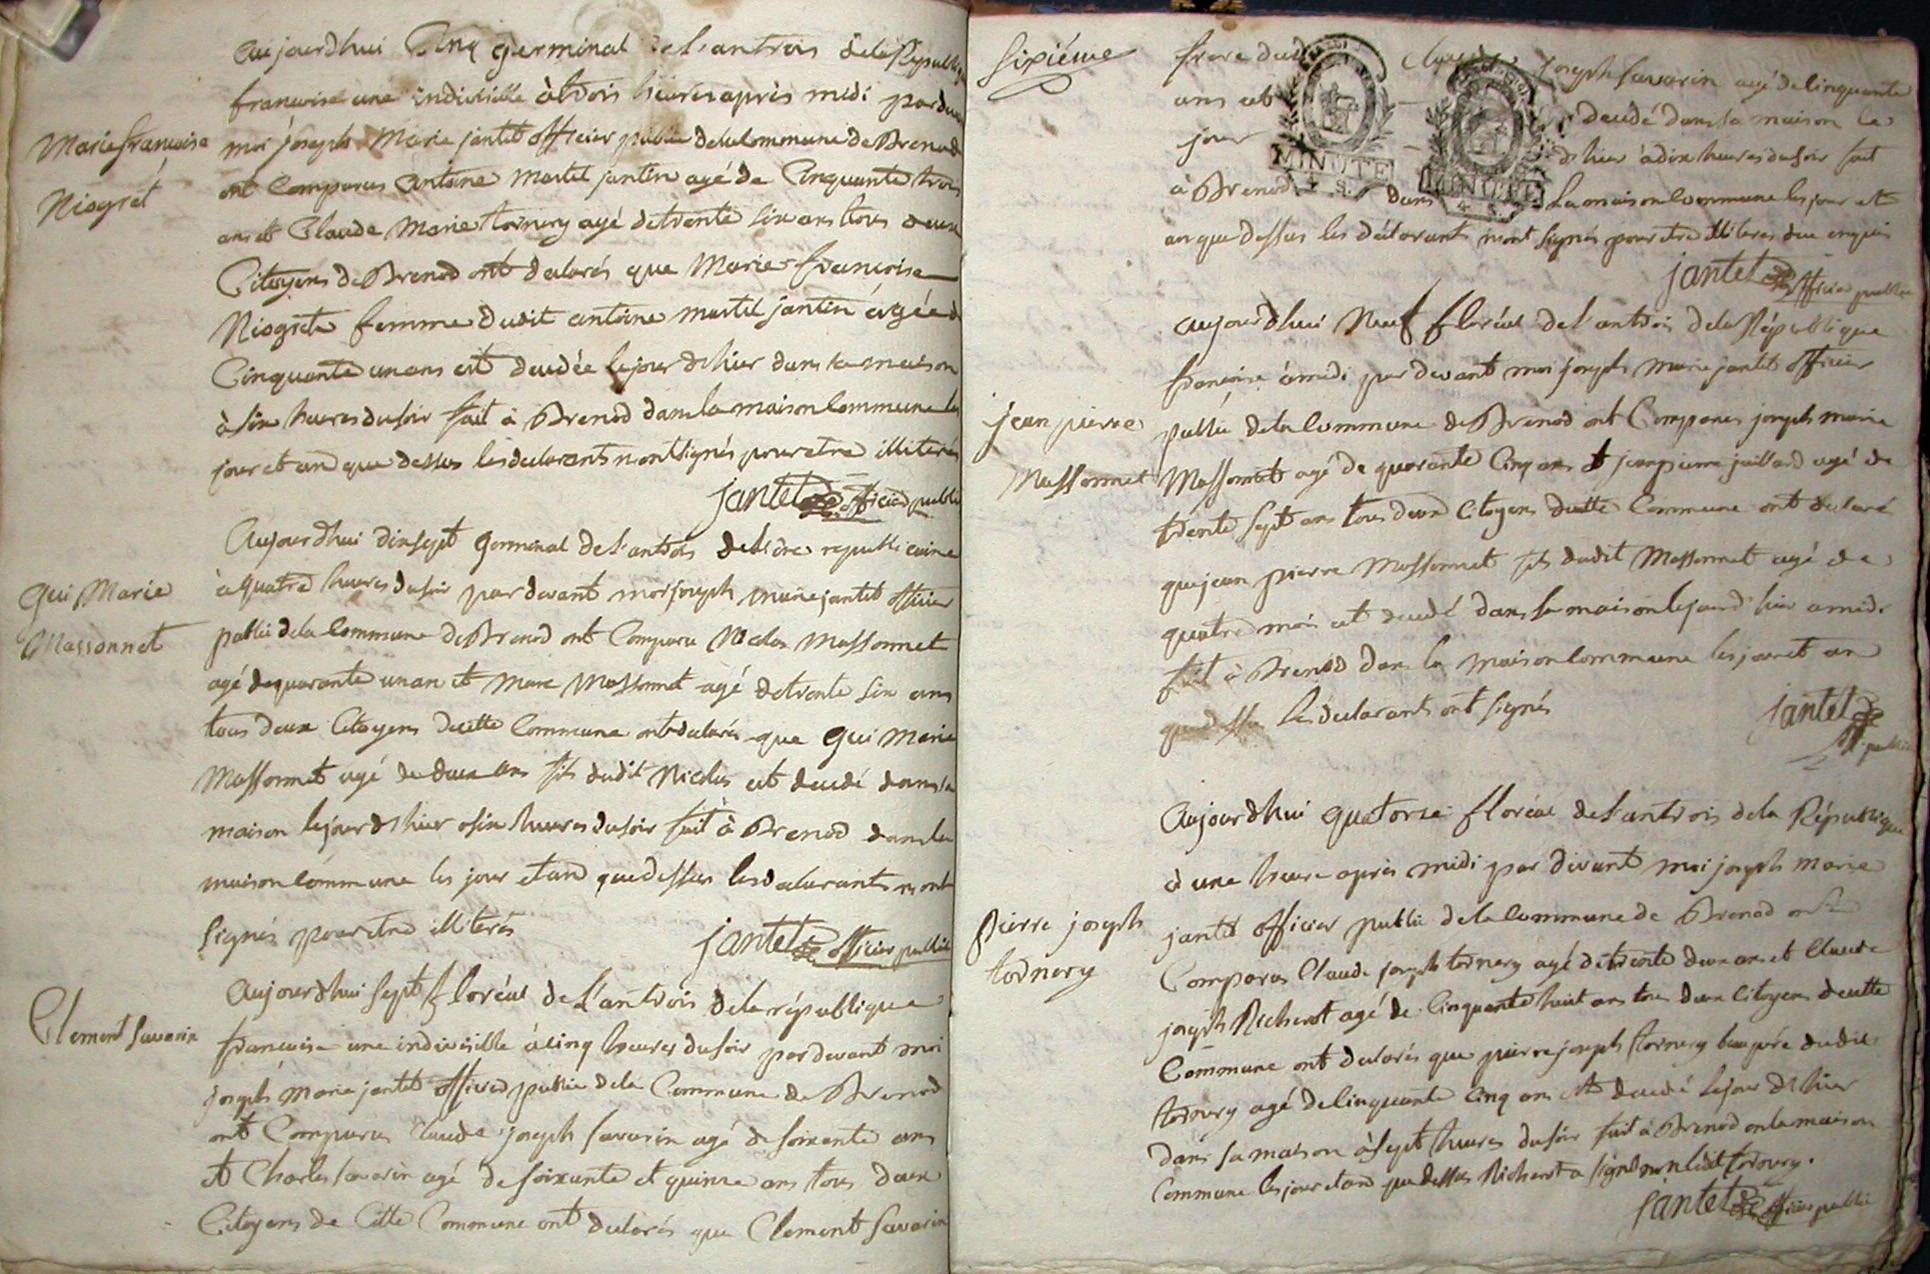 aujourdhui Cinq germinal de l'an trois de la Républi
francoise une indivisible à trois heures après midi par de
Marie francoise
moi joseph Marie jantet officier public de la Commune de Brenod
Niogret
ont Comparus antoine Martel jantin agé de Cinquante trois
ans et Claude Marie tornery agé de trente six ans tous deux
Citoyens de Brenod ont declarés que Marie francoise
Niogrete femme dudit antoine martel jantin agée d
Cinquante un ans est decedée le jour dhier dans sa maison
à six heures du soir fait à Brenod dans la maison Commune les
jour et an que dessus les declarants n'ont signés pour etre illiterés
jantet officier public
Aujourdhui dix sept germinal de l'an trois de l'ère republicaine
Gui Marie
Massonnet
à quatre heures du soir par devant moi joseph marie jantet officier
public de la Commune de Brenod ont Comparu Nicolas Massonnet
agé de quarante un an et Marc Massonnet agé de trente six ans
tous deux Citoyens de cette Commune ont declarés que Gui Marie
Massonnet agé de deux ans fils dudit Nicolas est decedé dans sa
maison le jour dhier a six heures du soir fait à Brenod dans la
maison Commune les jour et an que dessus les declarants n'ont
signés pour etre illiterés
jantet officier public
Clement Savarin
Aujourdhui sept floréal de l'an trois de la république
francoise une indivisible à cinq heures du soir par devant moi
joseph Marie jantet officier public de la Commune de Brenod
ont Comparus Claude joseph Savarin agé de soixante ans
et Charles Savarin agé de soixante et quinze ans tous deux
Citoyens de Cette Commune ont declarés que Clement Savarin
Sixiéme
frere dudit Claude joseph Savarin agé de Cinquante
ans est decedé dans sa maison le
jour dhier à dix heures du soir fait
à Brenod dans la maison Commune les jour et
an que dessus les déclarants n'ont signés pour etre illiteres
MINUTE
MINUTE
jantet officier public
aujourdhui Neuf floréal de l'an trois de la République
francoise à midi par devant moi joseph marie jantet officier
jean pierre
Massonnet
public de la Commune de Brenod ont Comparus joseph marie
Massonnet agé de quarante Cinq ans et jean pierre juillard agé de
trente sept ans tous deux Citoyens de cette Commune ont declaré
que jean pierre Massonnet fils dudit Massonnet agé de
quatre mois est decedé dans sa maison le jour d'hier a midi
fait à Brenod dans la maison Commune les jour et an
que dessus les declarants ont signés
jantet
off. public
Aujourdhui quatorse floréal de l'an trois de la République
à une heure après midi par devant moi joseph marie
Pierre joseph
tornery
jantet officier public de la Commune de Brenod ont
Comparus Claude joseph tornery agé de trente deux ans et Claude
joseph Richerot agé de Cinquante huit ans tous deux Citoyens de cette
Commune ont declarés que pierre joseph tornery beau pére dudit
tornery agé de Cinquante Cinq ans est decedé le jour dhier
dans sa maison à sept heures du soir fait à Brenod en la maison
Commune les jour et an que dessus Richerot a signé non ledit tornery.
jantet officier public